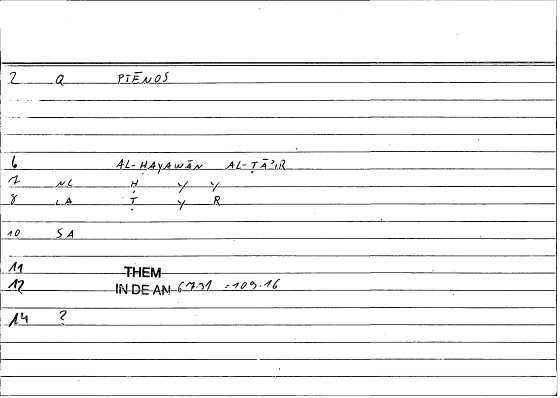 2 Q PTĒNOS
6 AL-ḤAYAWĀN AL-ṬĀʾIR
7 NL Ḥ Y Y
8 LA Ṭ Y R
10 SA
11 THEM
12 IN DE AN 67.31 = 109.16
14 ?